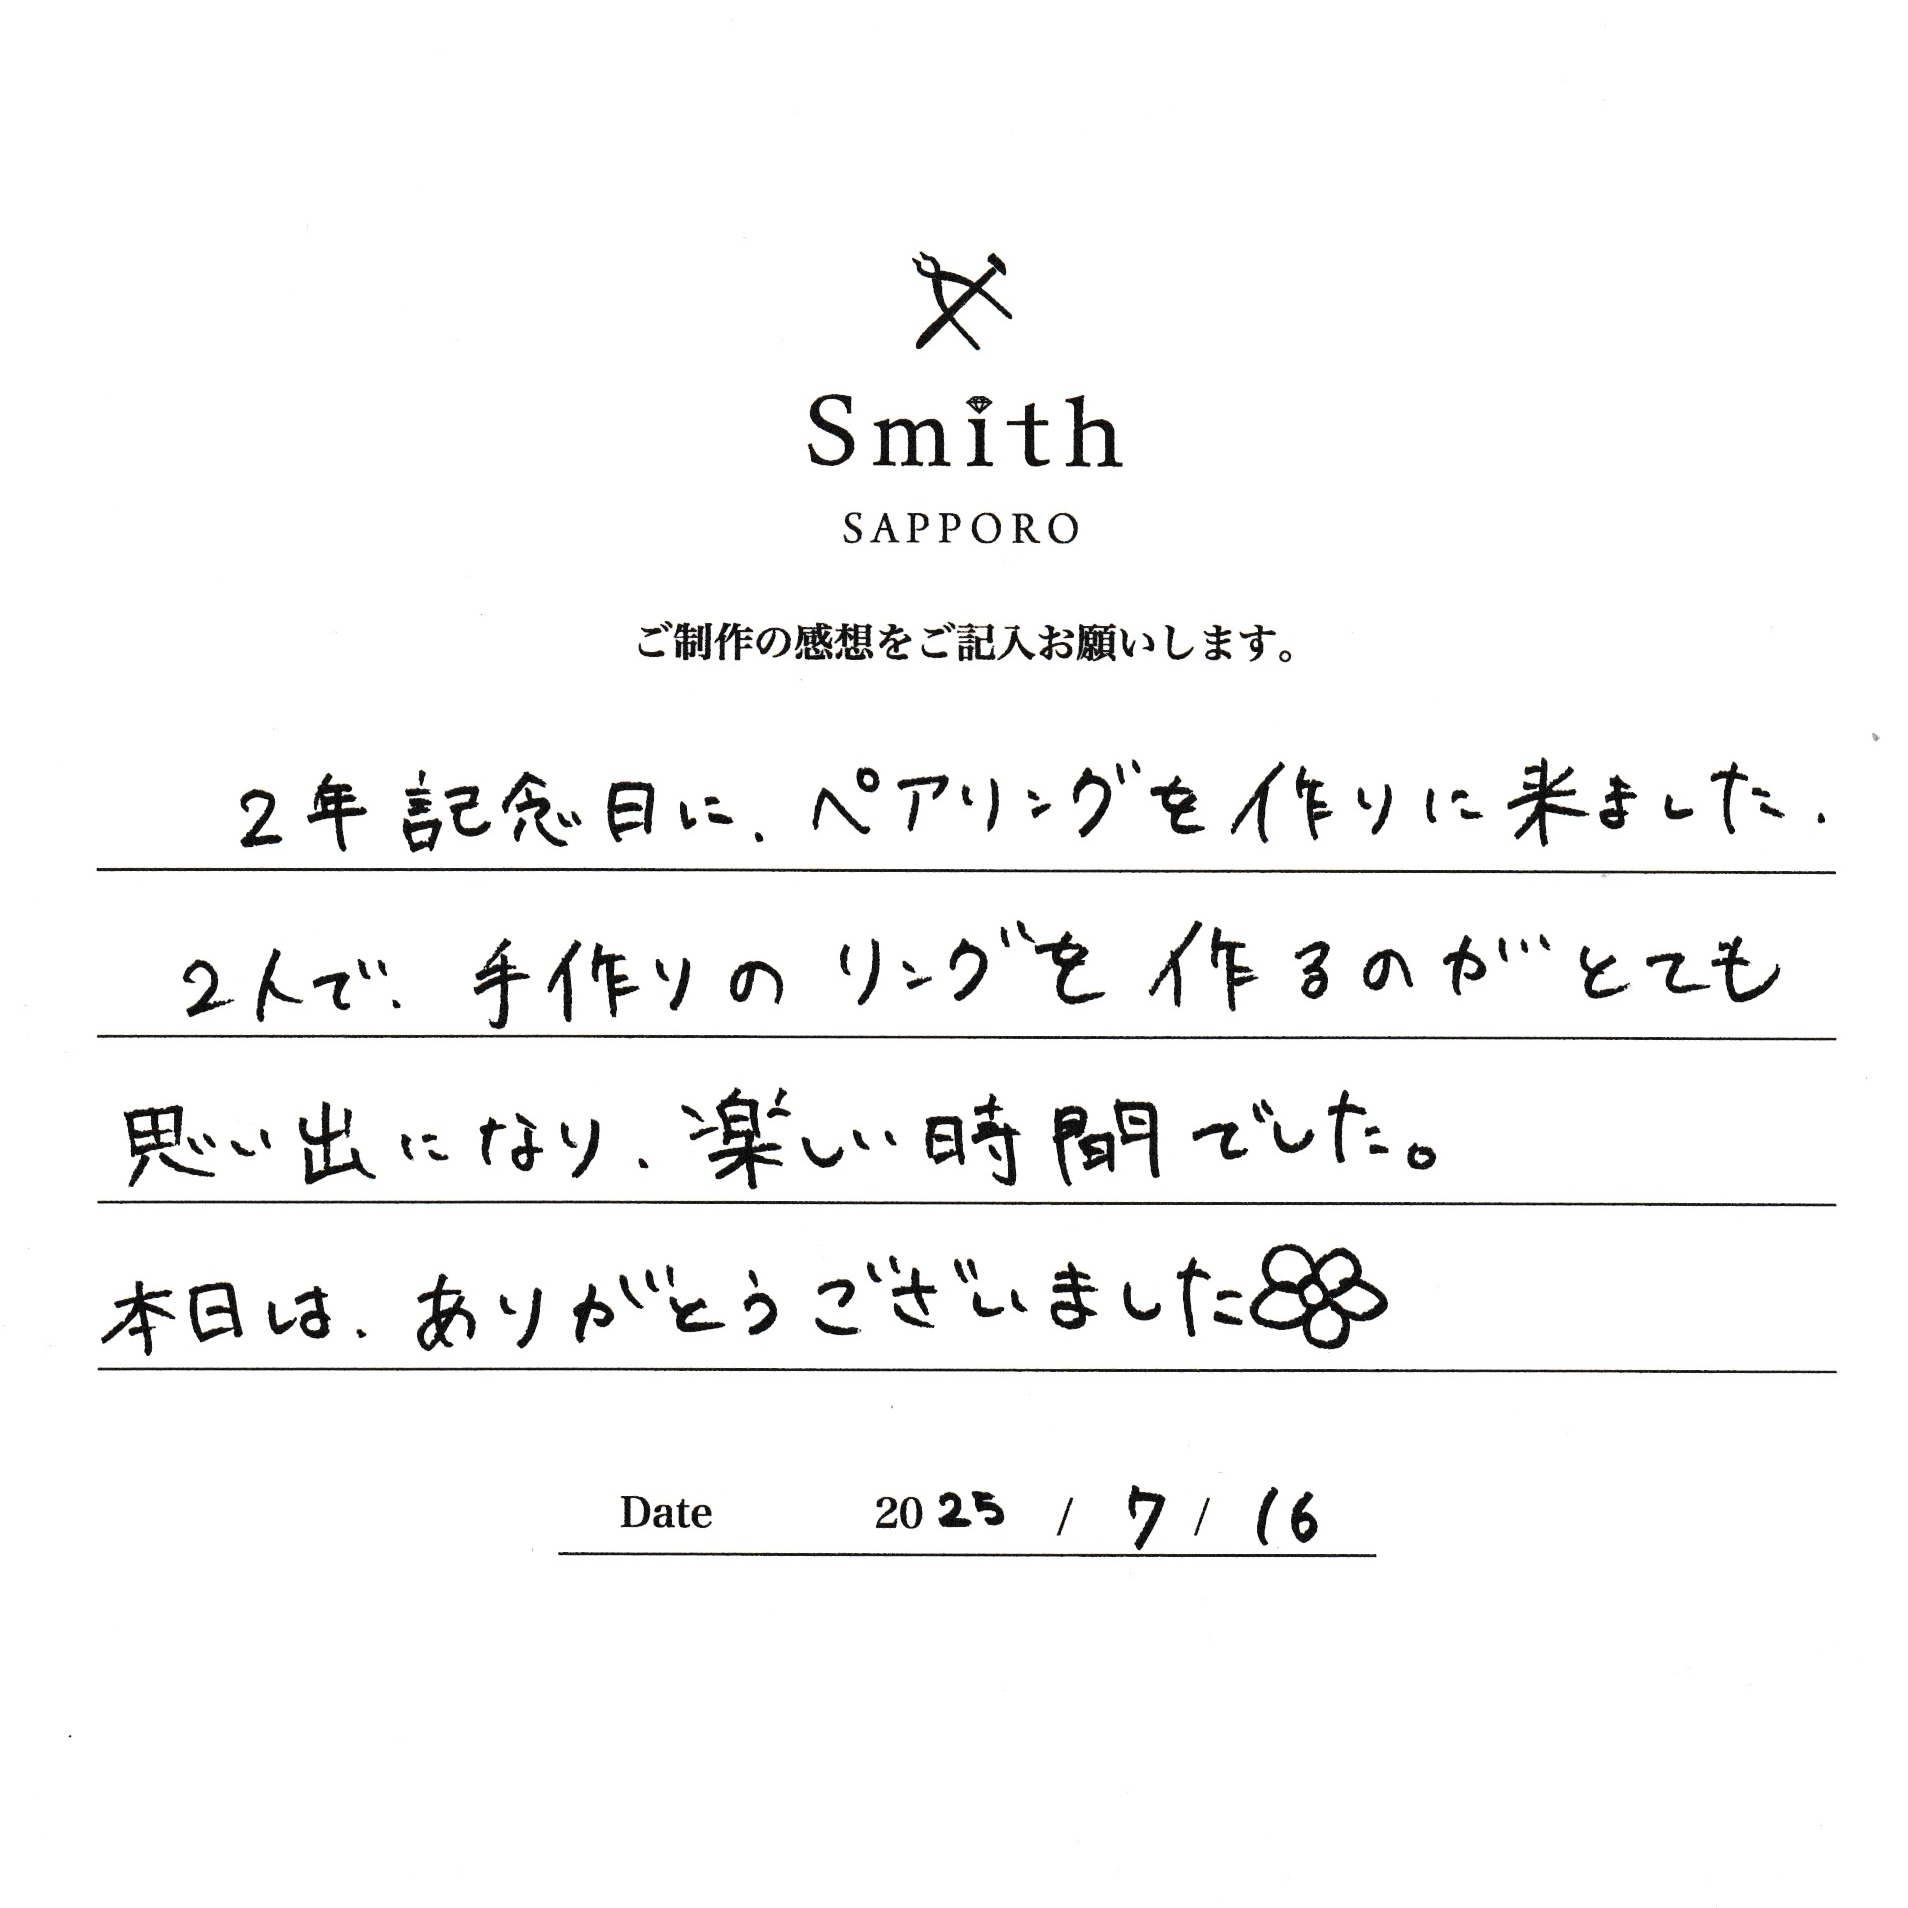 Smith
SAPPORO
ご制作の感想をご記入お願いします。
2年記念日に、ペアリングを作りに来ました、
2人で、手作りのリングを作るのがとても
思い出になり、楽しい時間でした。
本日は、ありがとうございました
Date 2025 / 7 / 16